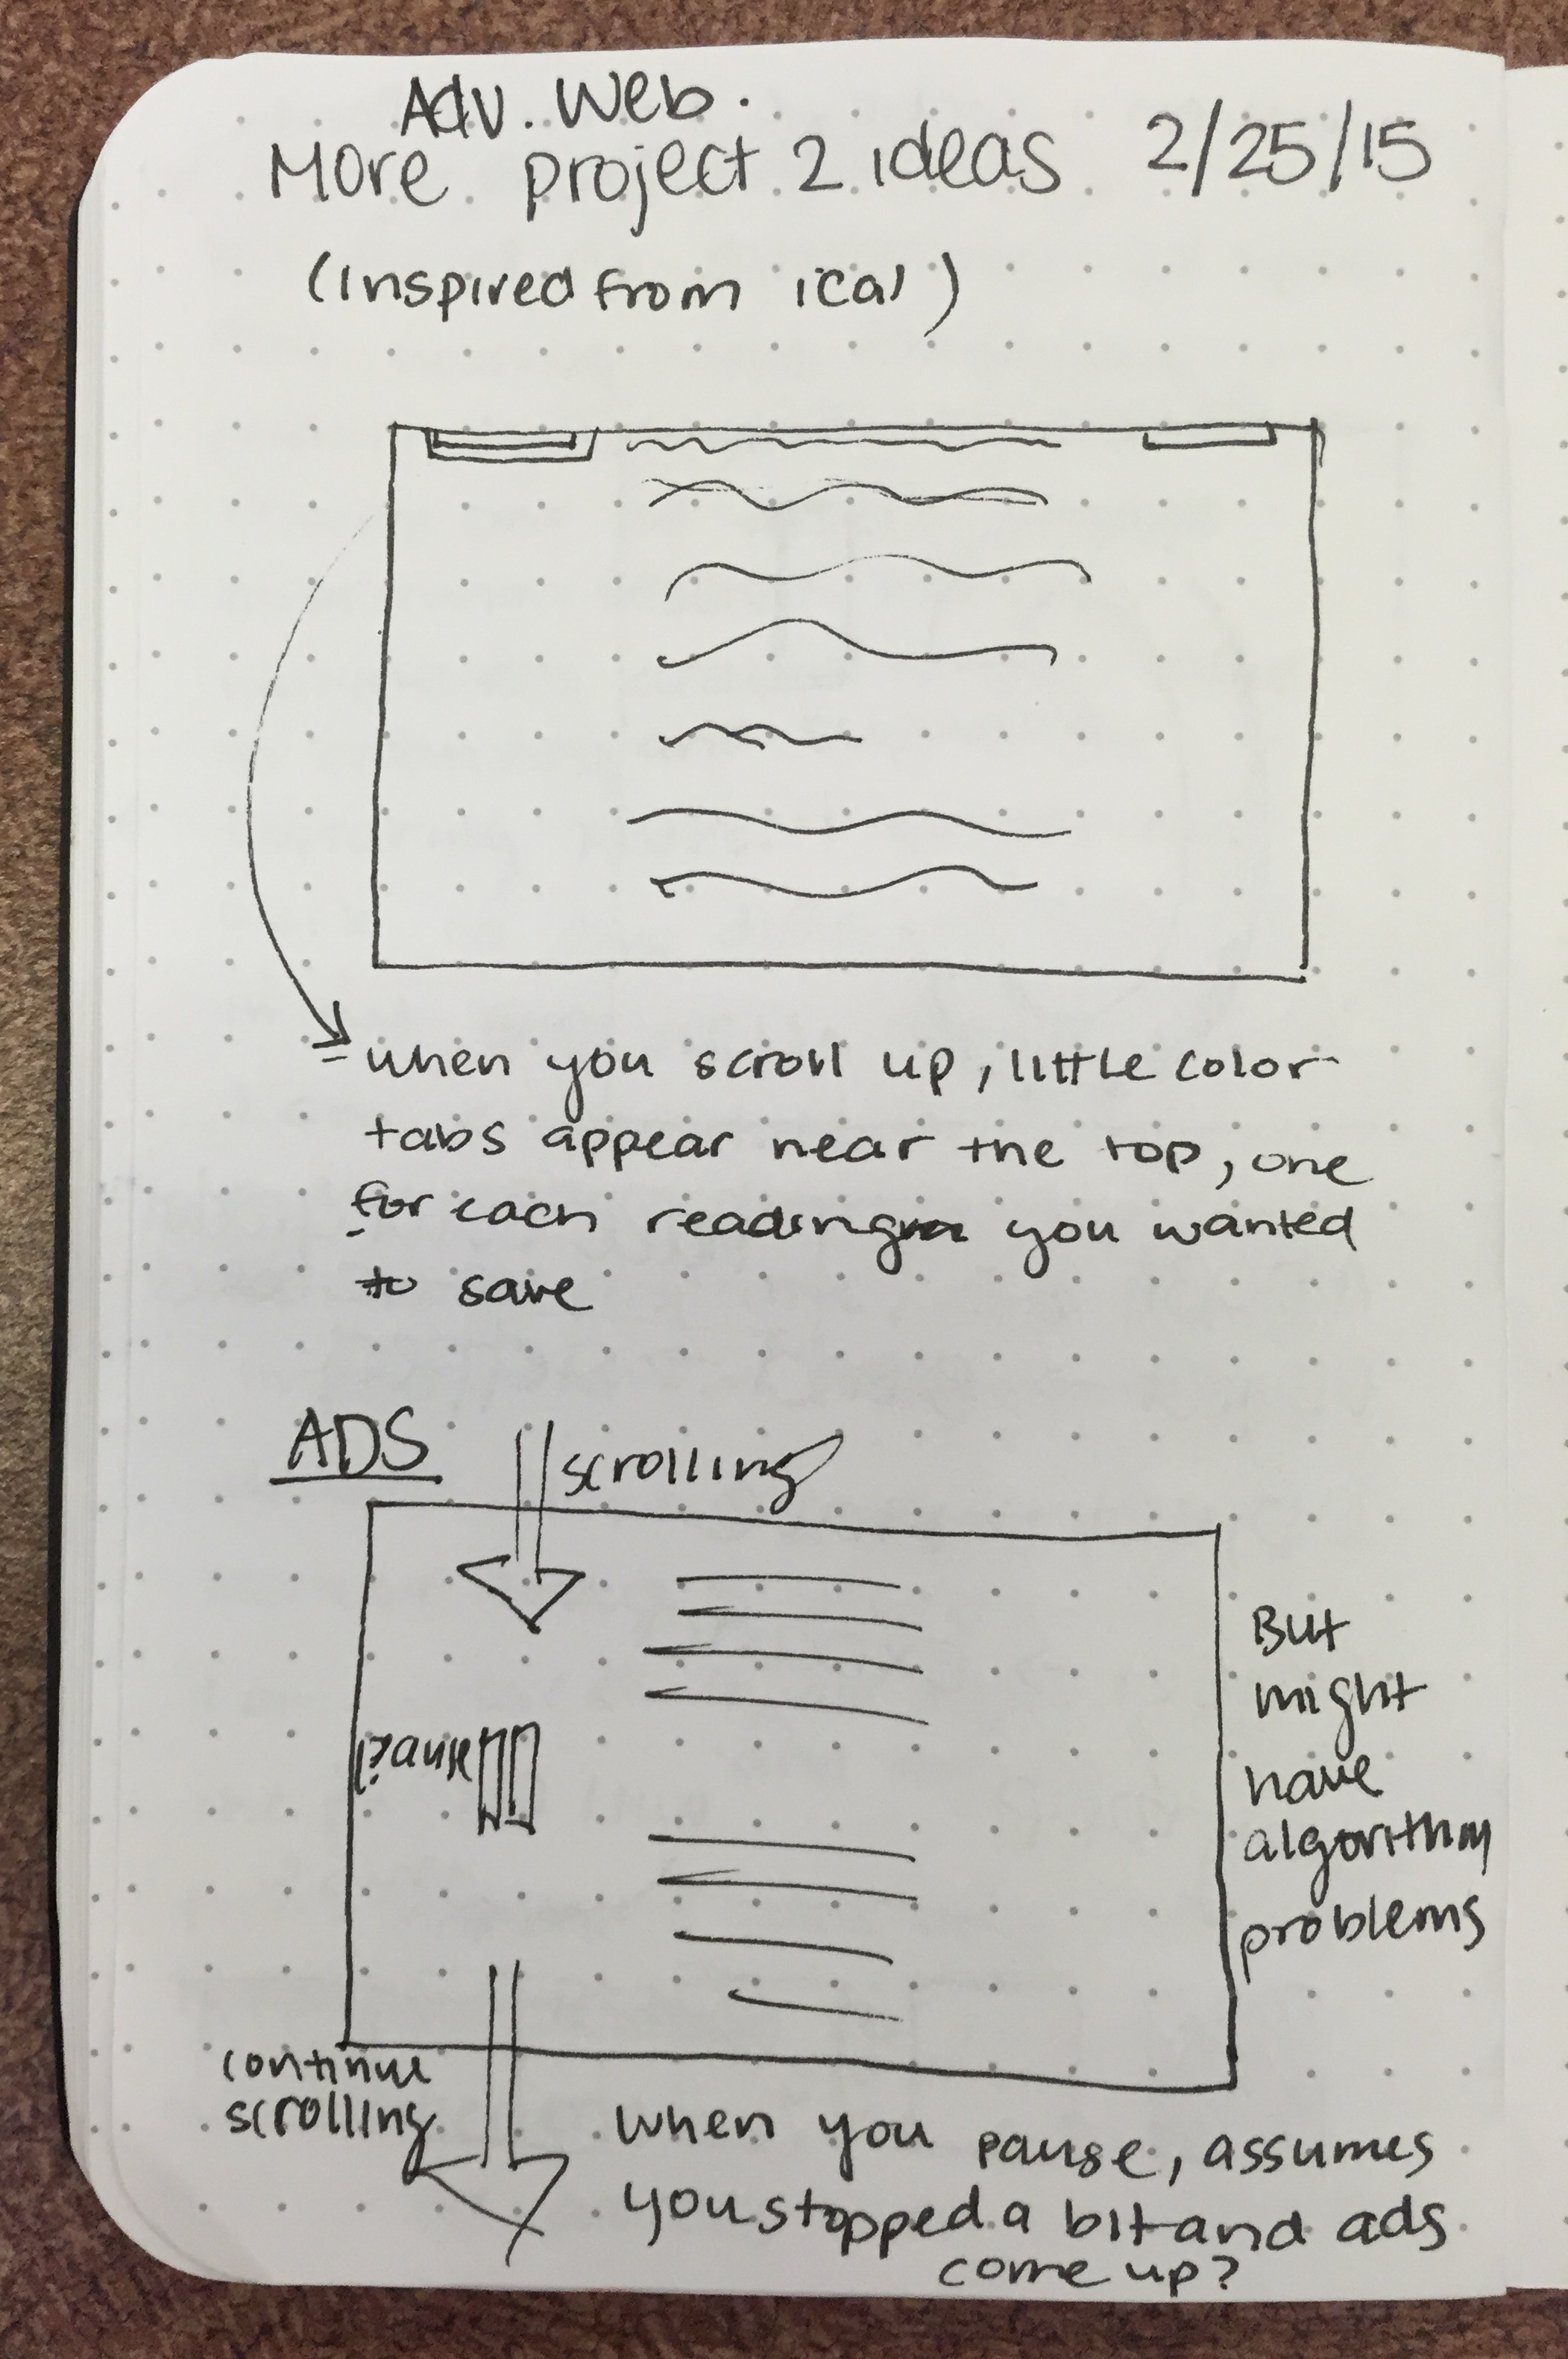 Adv. Web.
More project 2 ideas 2/25/15
(Inspired from ical)
- when you scroll up, little color
tabs appear near the top, one
for each reading you wanted
to save
ADS
scrolling
pause
But
might
have
algorithm
problems
continue
scrolling
when you pause, assumes
you stopped a bit and ads
come up?